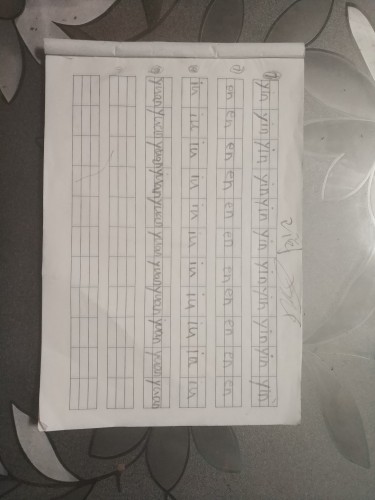 yin yin yin yin yin yin yin yin yin yin yin
en en en en en en en en en en en
in in in in in in in in in in in
yuan yuan yuan yuan yuan yuan yuan yuan yuan yuan yuan